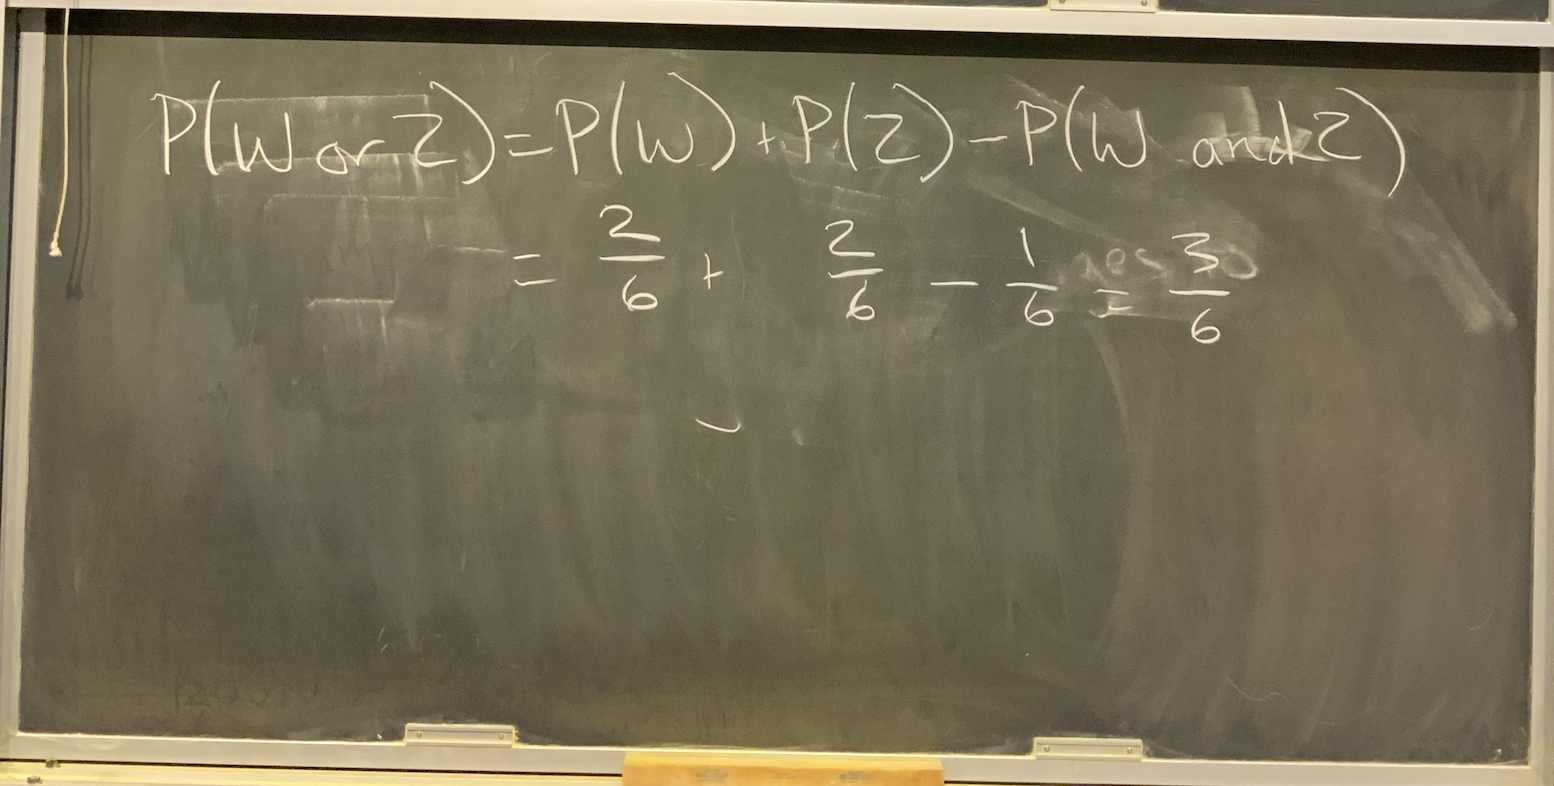 P(W or Z) = P(W) + P(Z) - P(W and Z)
= 2/6 + 2/6 - 1/6 = 3/6